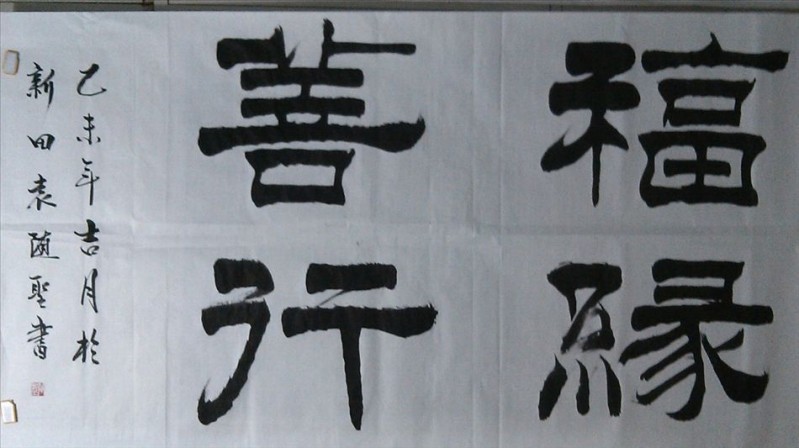 福緣
善行
乙未年吉月於
新田袁随聖書